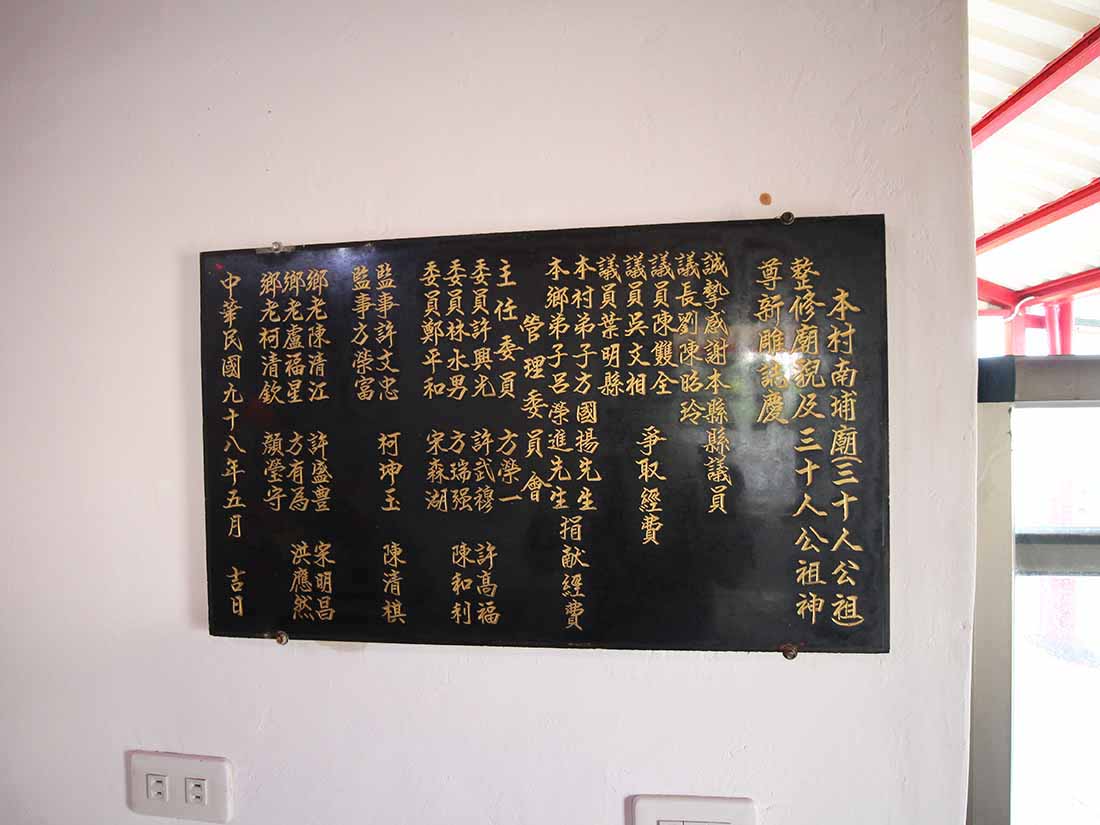 本村南埔廟(三十人公祖)
整修廟貌及三十人公祖神
尊新雕誌慶
誠摯感謝本縣縣議員
議長劉陳昭玲
議員陳雙全
議員吳文相
議員葉明縣
爭取經費
本村弟子方國揚先生
本鄉弟子呂榮進先生
捐献經費
管理委員會
主任委員 方榮一
委員許興光 許武穆 許高福
委員林水男 方瑞强 陳和利
委員鄭平和 宋森湖
監事許文忠 柯坤玉 陳清棋
監事方榮富
鄉老陳清江 許盛豊 宋明昌
鄉老盧福星 方有為 洪應然
鄉老柯清欽 顏瑩守
中華民國九十八年五月 吉日